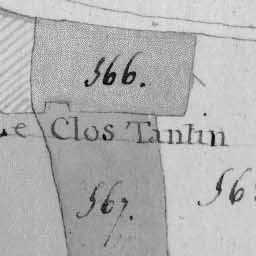 566.
Le Clos Tantin
567.